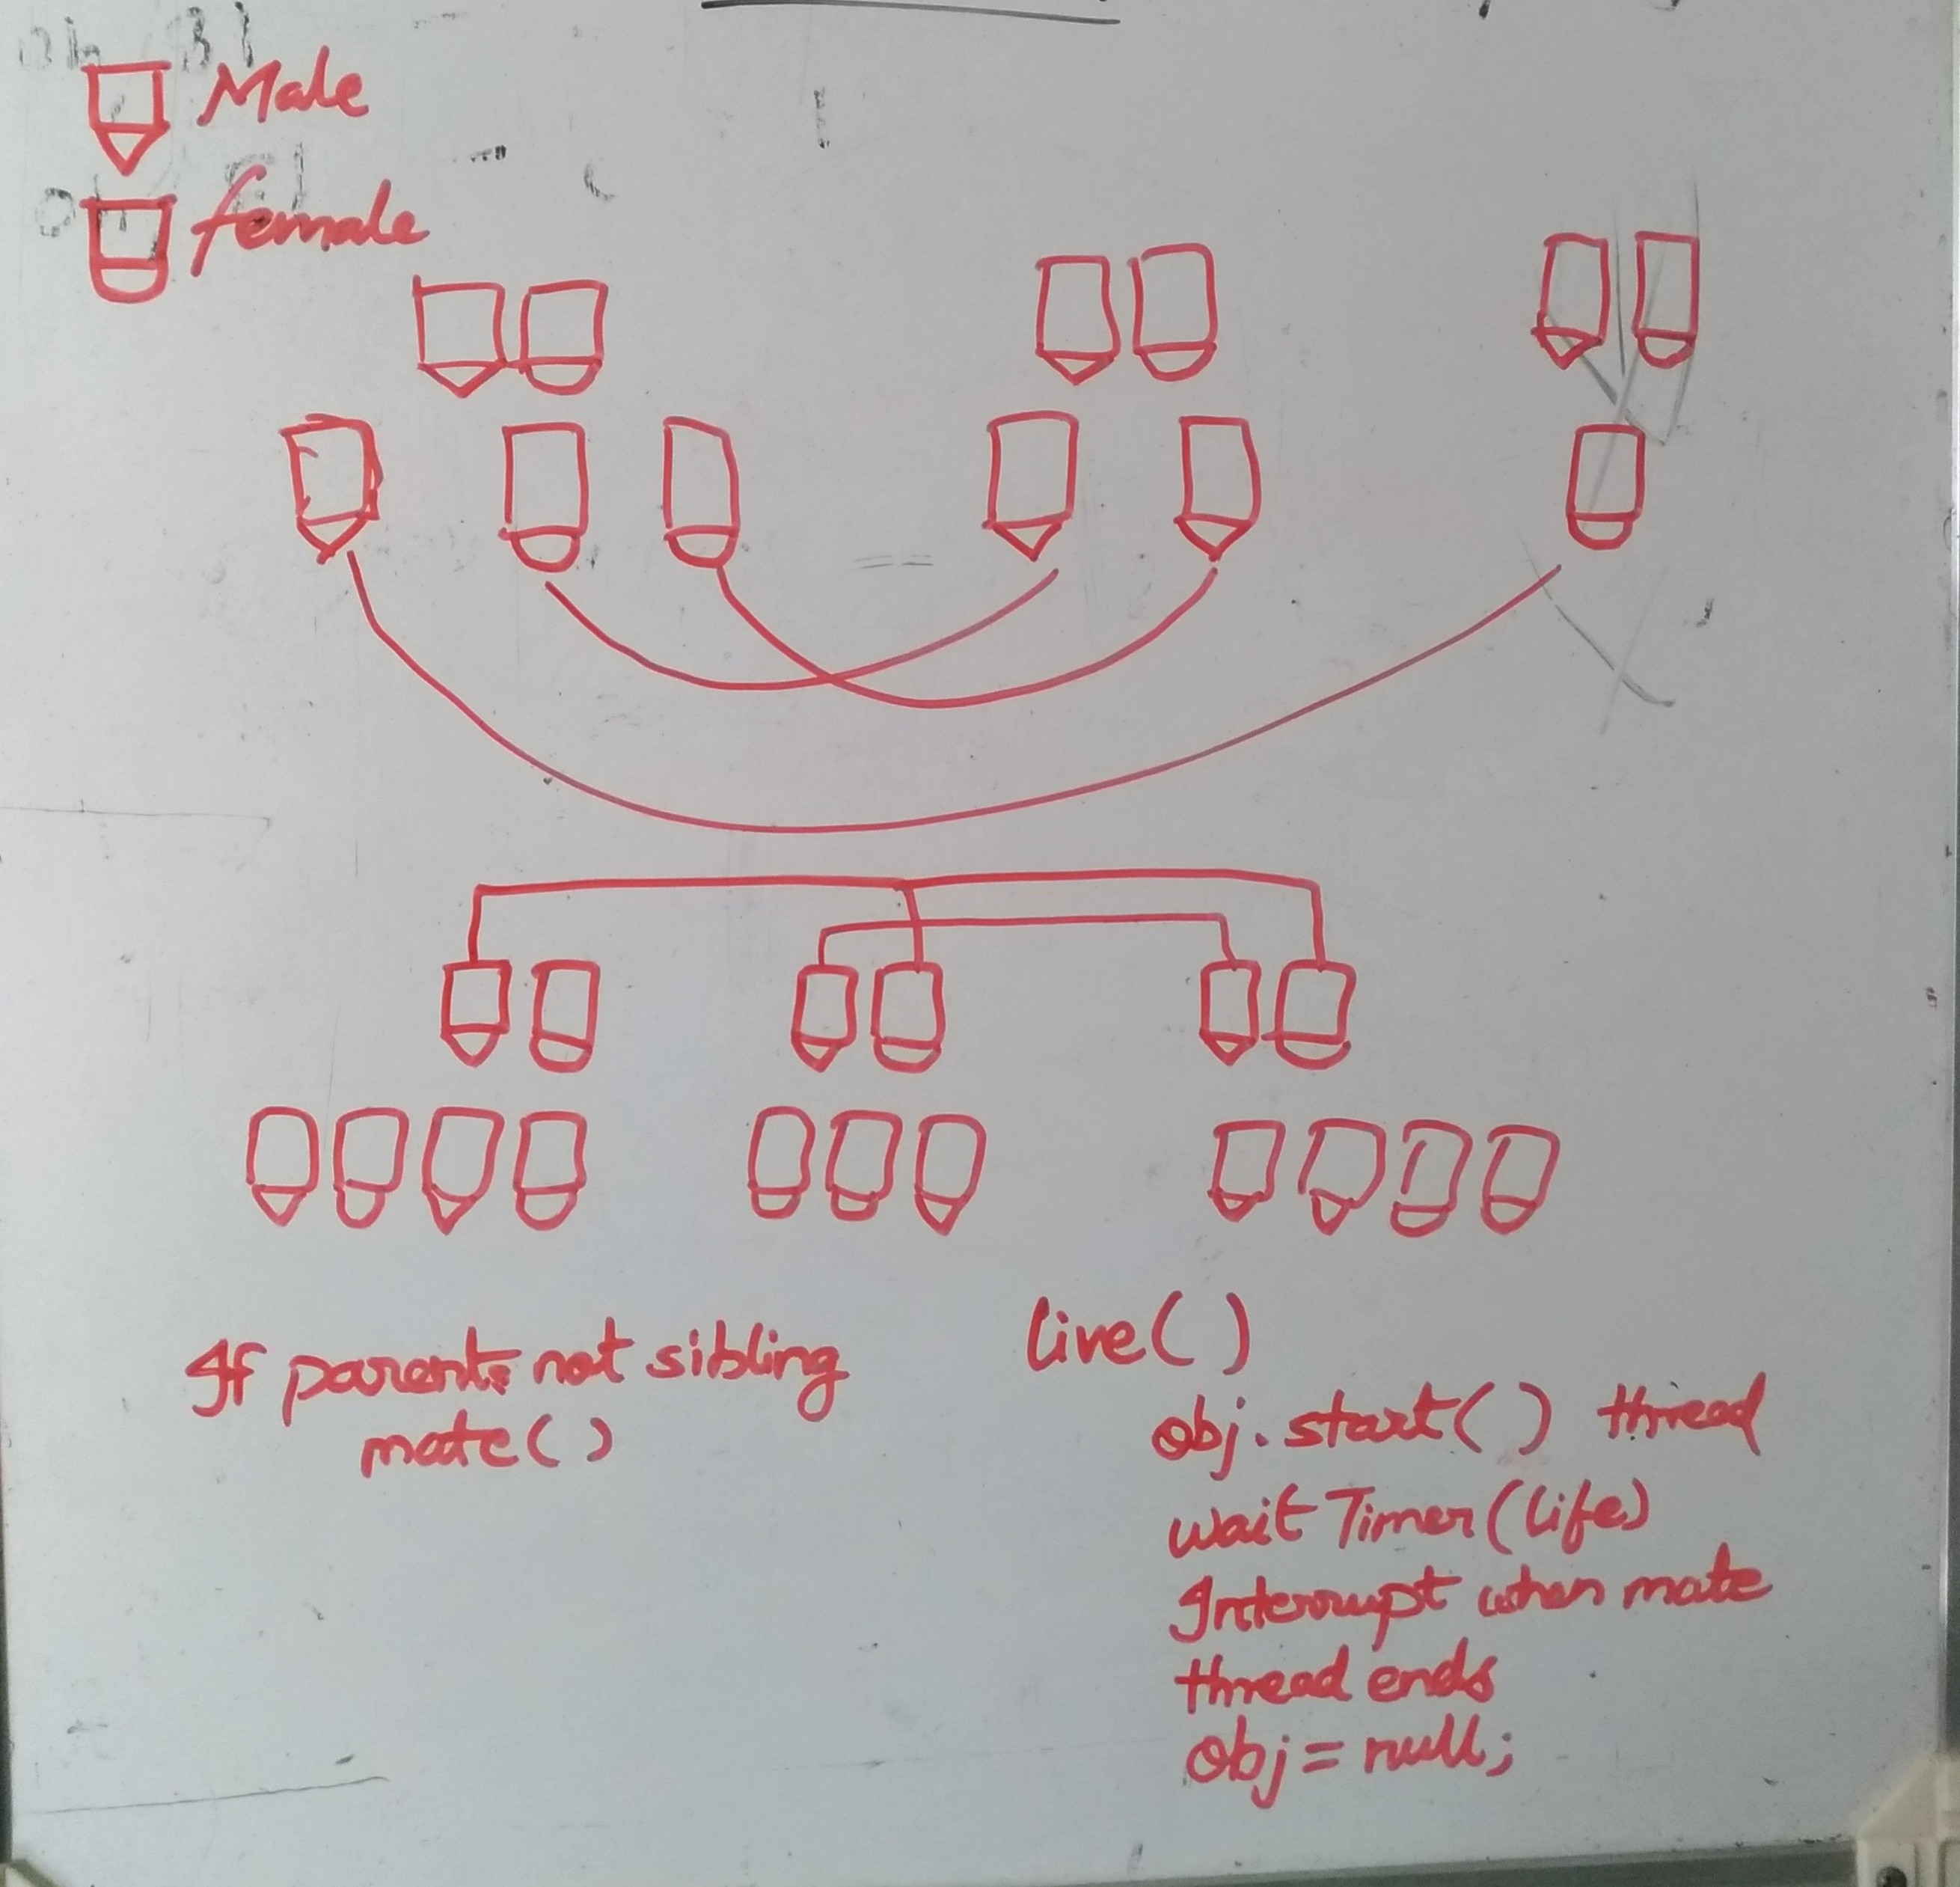 Male
female
If parents not sibling
mate()
live()
obj.start() thread
wait Timer(life)
Interrupt when mate
thread ends
obj = null;